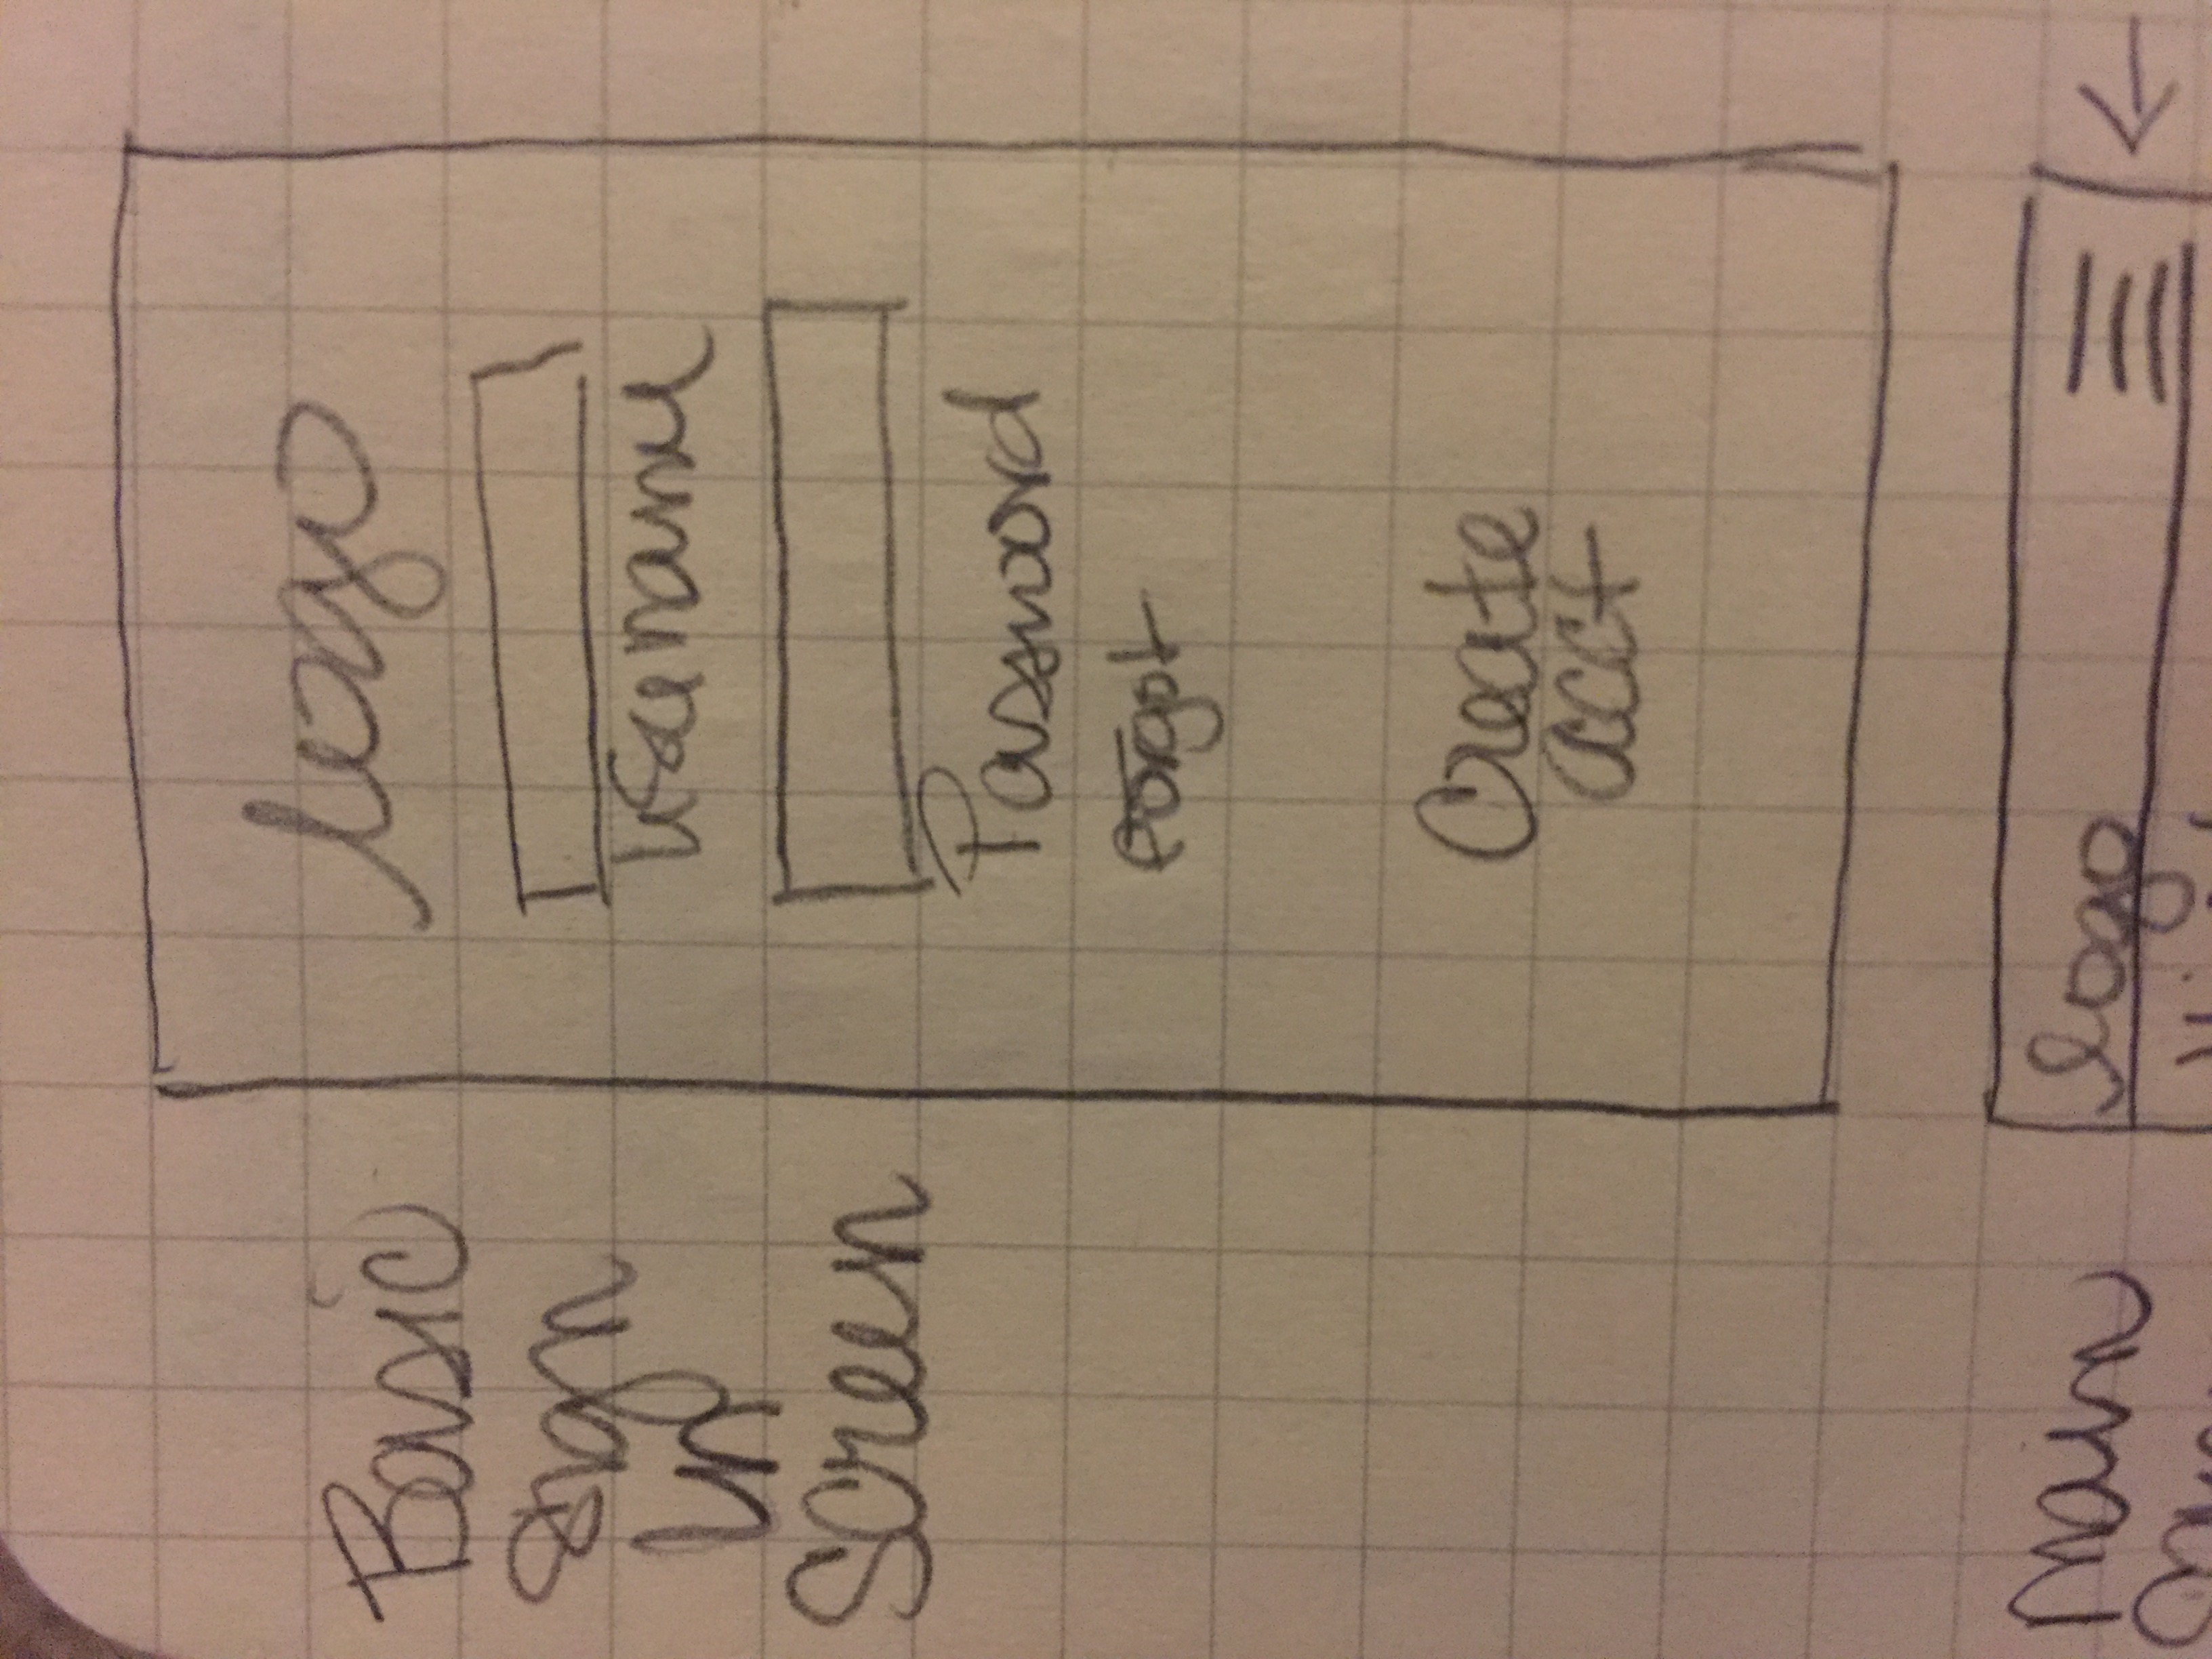 Basic
Sign
In
Screen
logo
Username
Password
Forgot
Create
acct
Main
logo